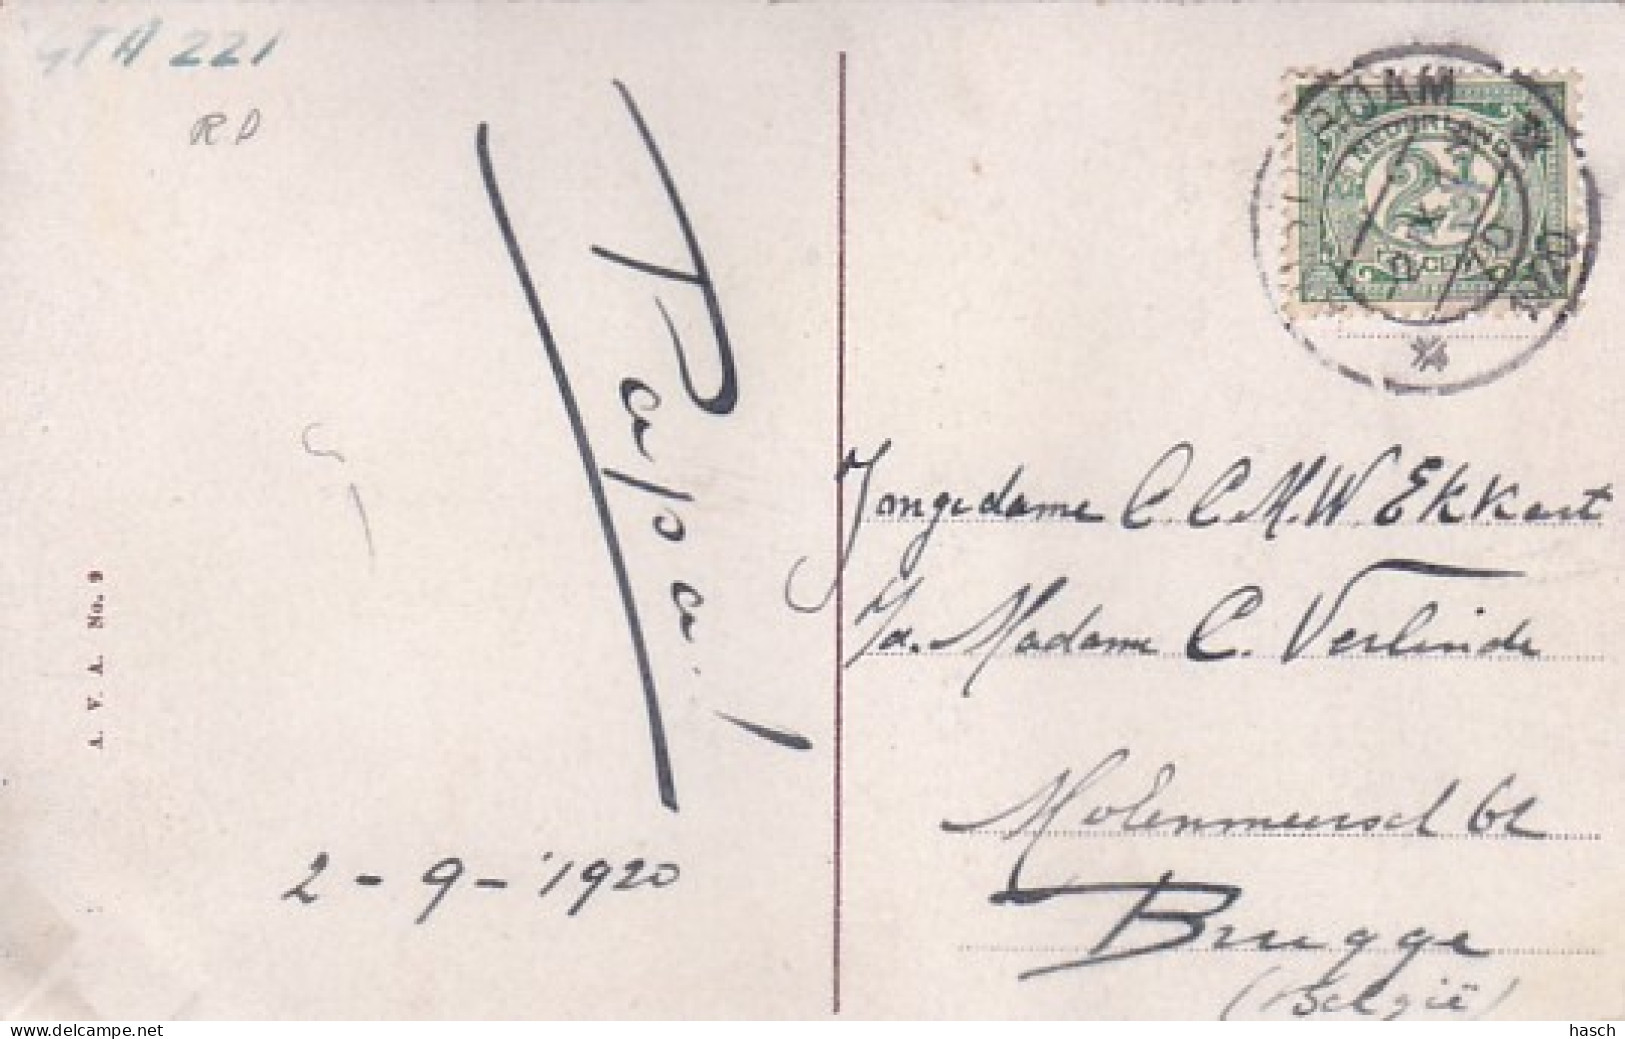 GTA 221
RD
Papa!
2-9-1920
A. V. A. No. 9
NEDERLAND
2 1/2
CENT
1920
Jongedame C. C. M. W Ekkart
p/a. Madame C. Verlinde
Molenmeersch 62
Brugge
(België)
www.delcampe.net
hasch